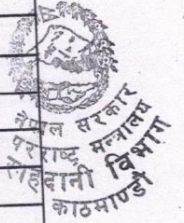 नेपाल सरकार
परराष्ट्र मन्त्रालय
राहदानी विभाग
काठमाण्डौ